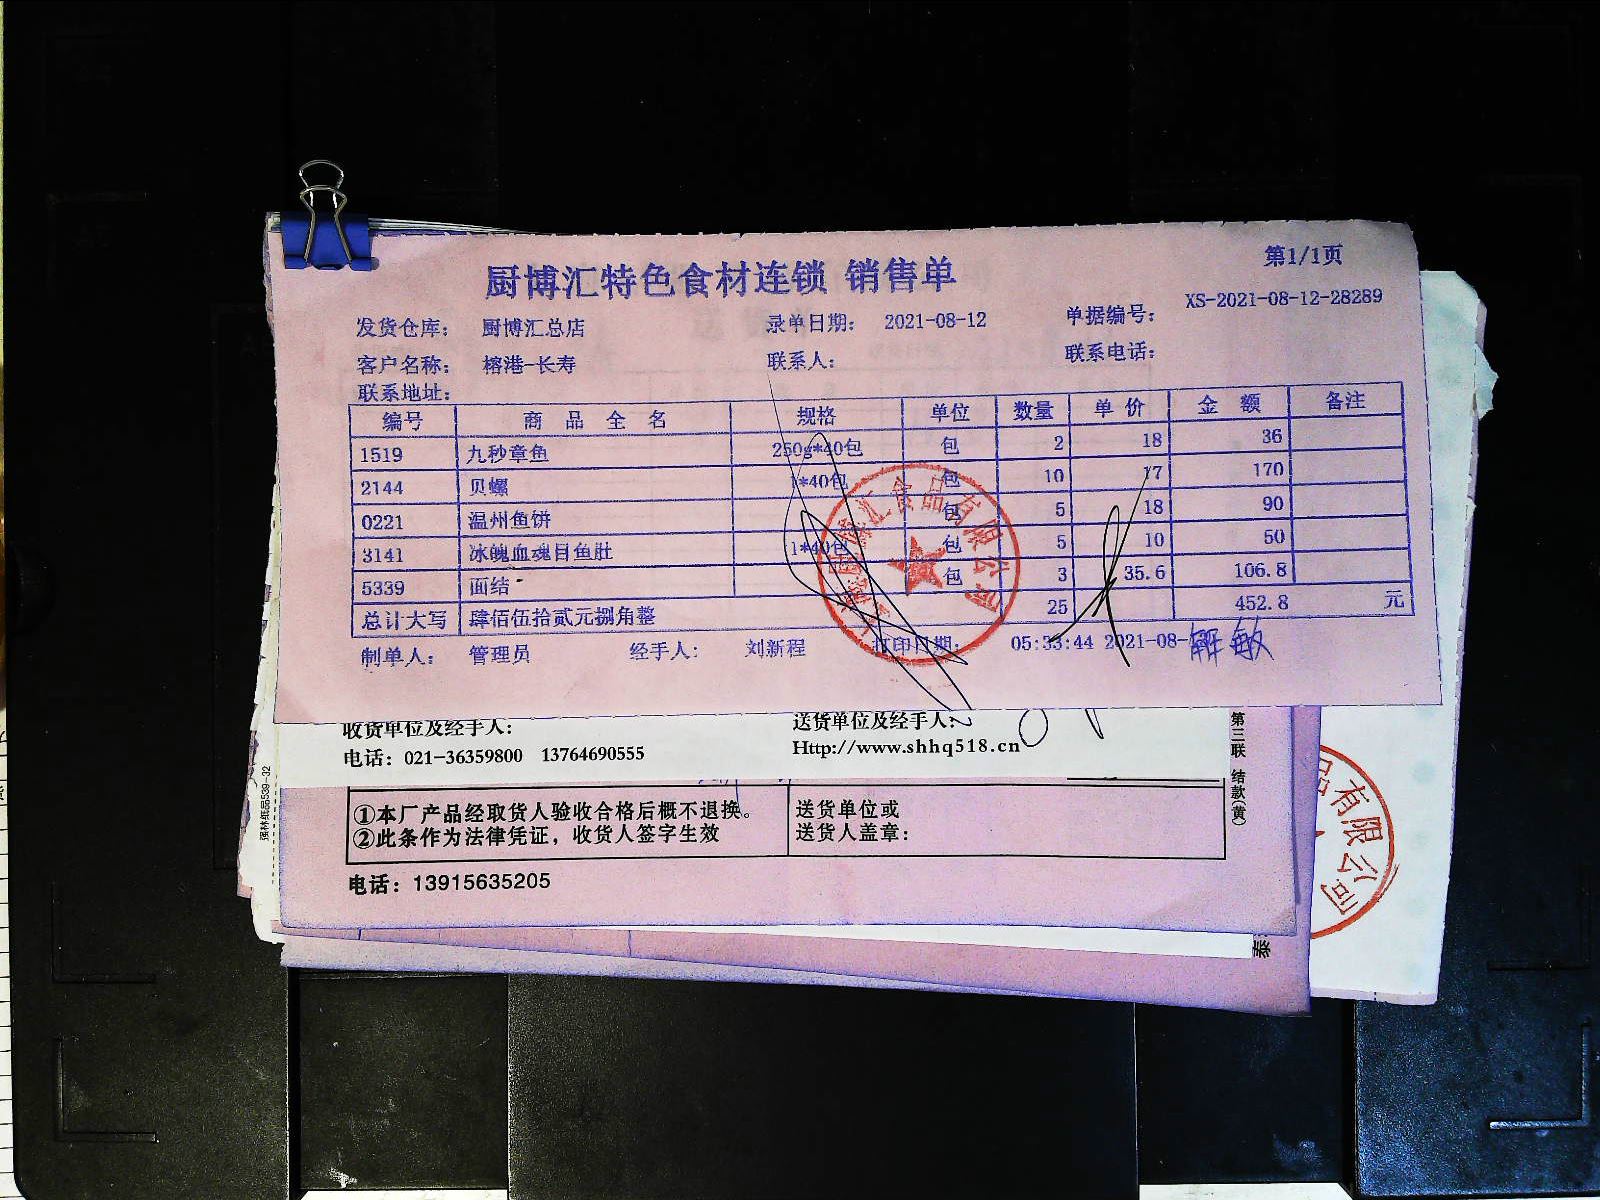 第1/1页
厨博汇特色食材连锁 销售单
发货仓库： 厨博汇总店 录单日期： 2021-08-12 单据编号： XS-2021-08-12-28289
客户名称： 榕港-长寿 联系人： 联系电话：
联系地址：
编号 商品全名 规格 单位 数量 单价 金额 备注
1519 九秒章鱼 250g*40包 包 2 18 36
2144 贝螺 1*40包 包 10 17 170
0221 温州鱼饼 包 5 18 90
3141 冰魄血魂目鱼肚 1*40包 包 5 10 50
5339 面结 包 3 35.6 106.8
总计大写 肆佰伍拾贰元捌角整 25 452.8 元
制单人： 管理员 经手人： 刘新程 打印日期： 05:33:44 2021-08-
解敏
汇食品有限公司
收货单位及经手人： 送货单位及经手人：
电话：021-36359800 13764690555 Http://www.shhq518.cn
第三联 结款(黄)
①本厂产品经取货人验收合格后概不退换。
②此条作为法律凭证，收货人签字生效
送货单位或
送货人盖章：
电话：13915635205
品有限公司
泰